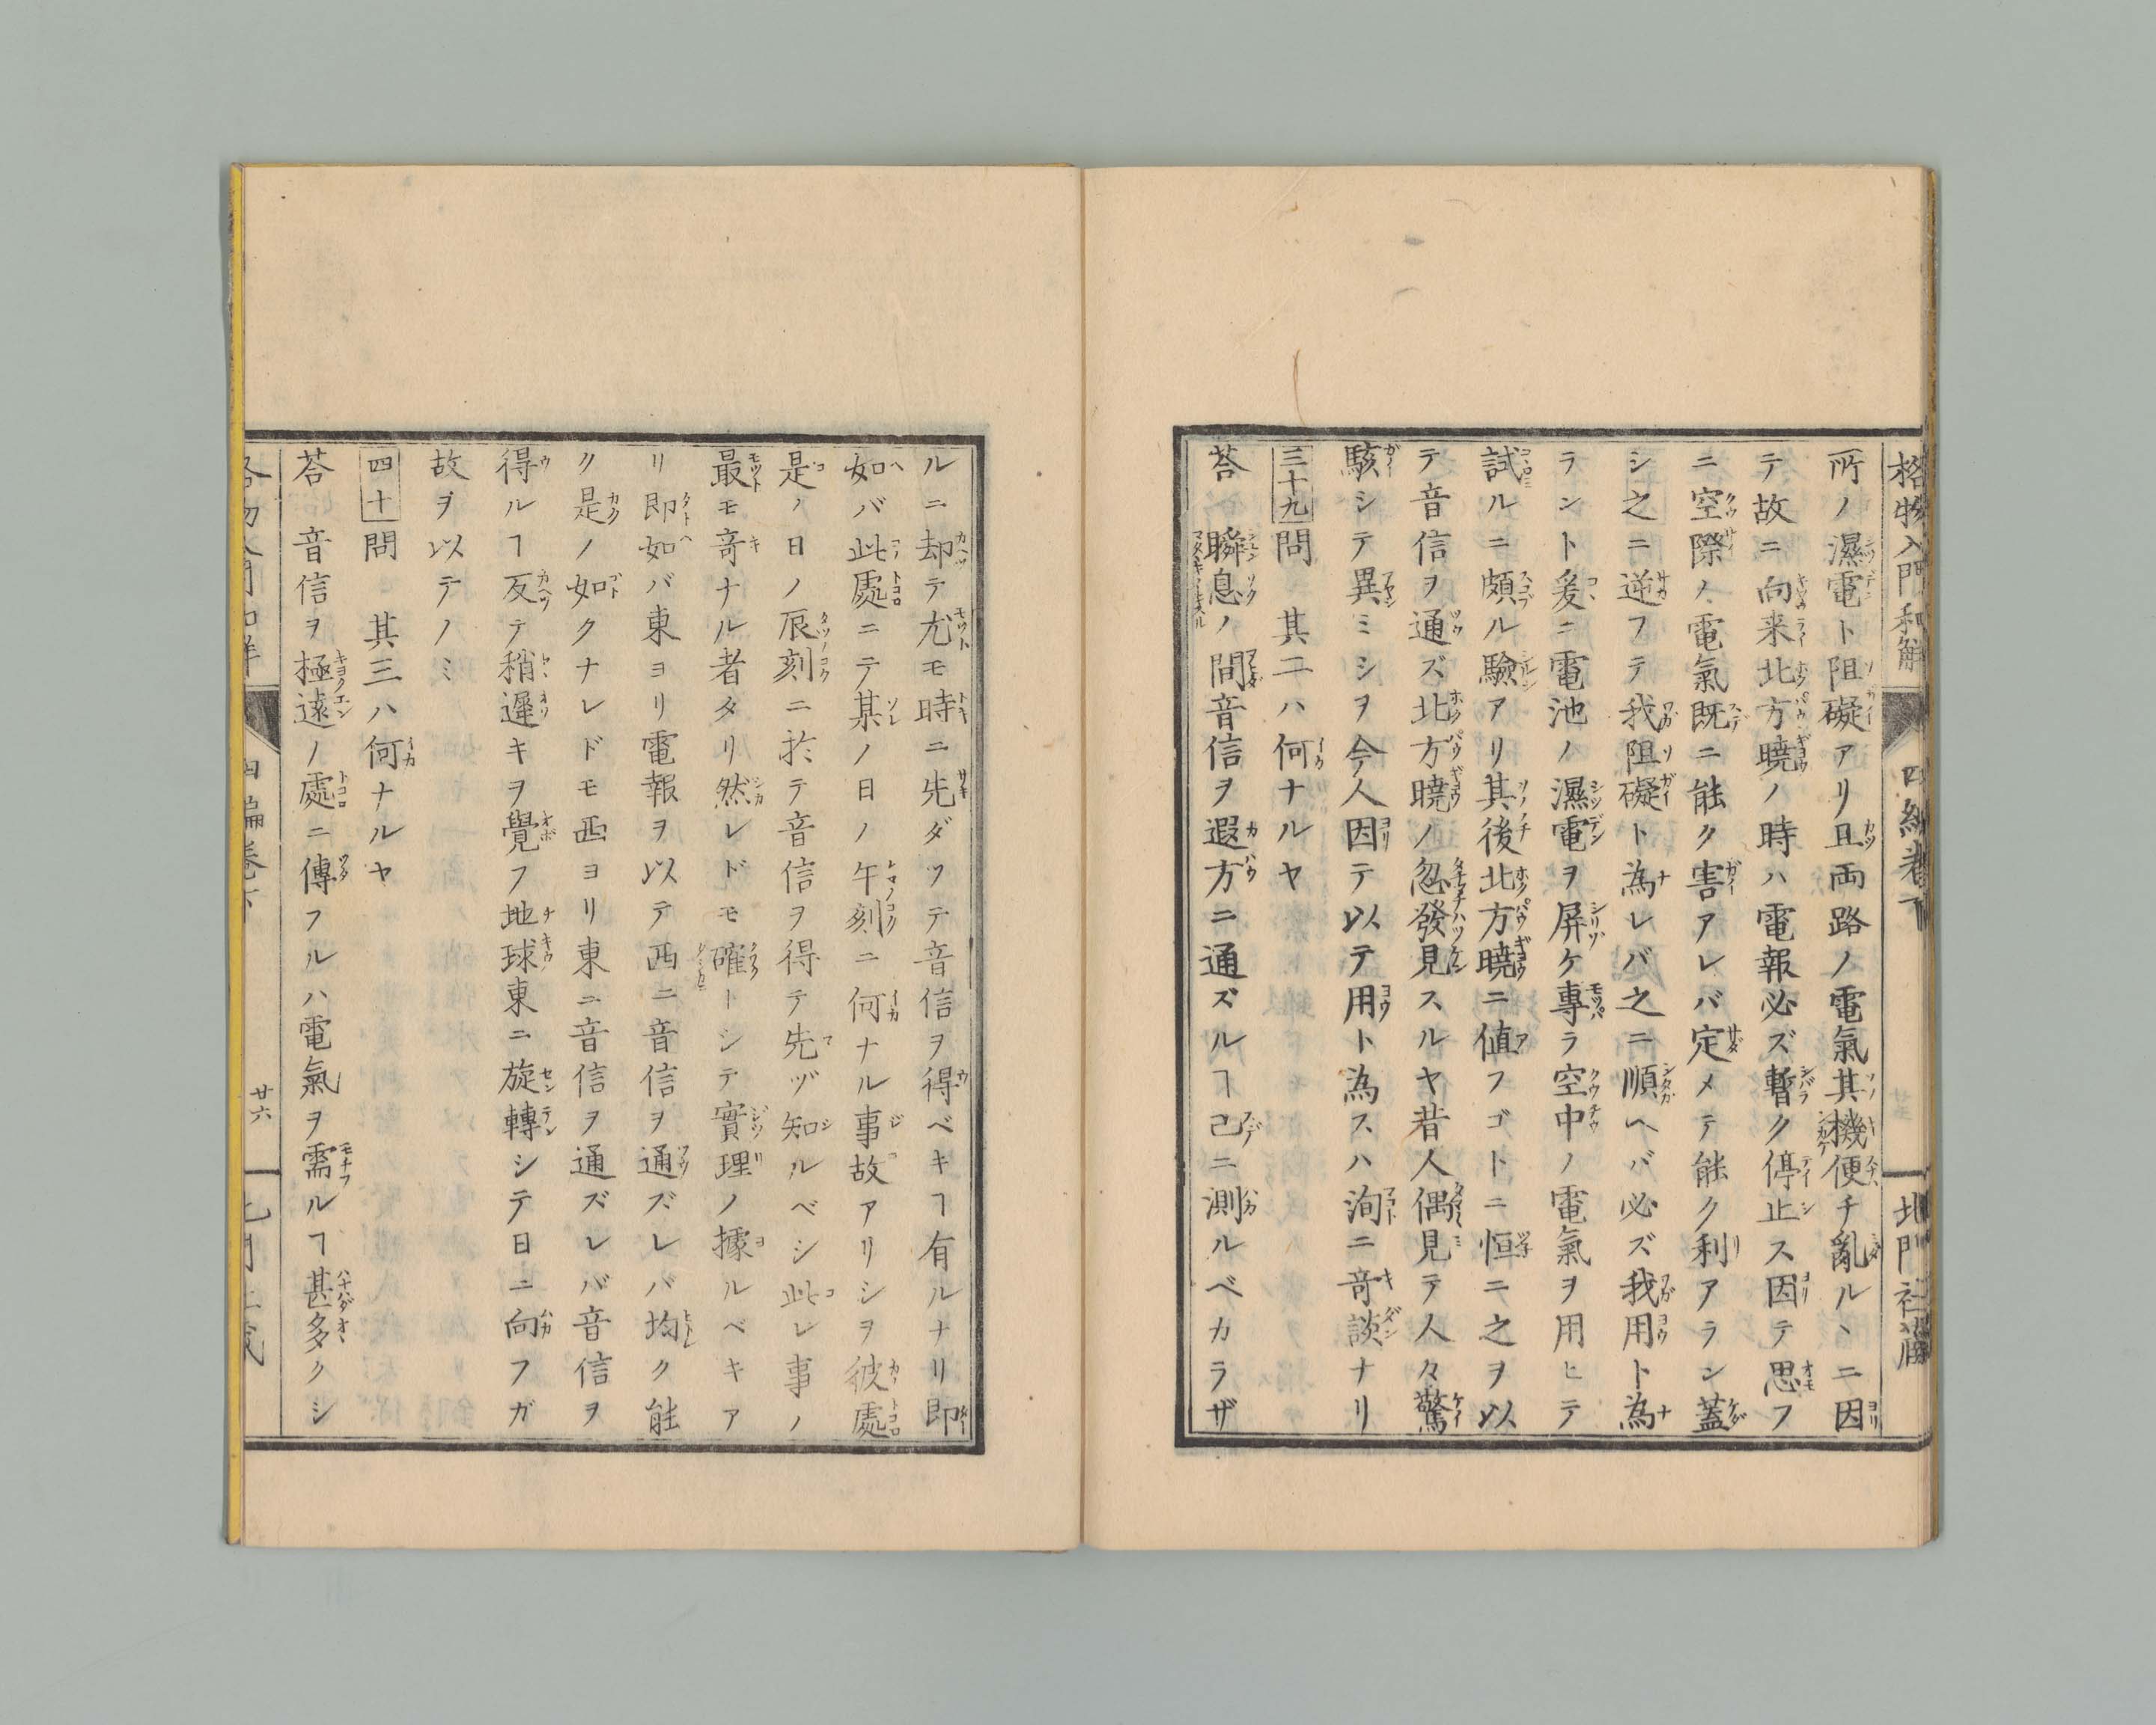 格物入門和解
四編巻下
北門社藏
所ノ濕電ト阻礙アリ且両路ノ電氣其機便チ亂ルヽニ因
テ故ニ向来北方曉ノ時ハ電報必ズ暫ク停止ス因テ思フ
ニ空際ノ電氣既ニ能ク害アレバ定メテ能ク利アラン蓋
シ之ニ逆フテ我阻礙ト為レバ之ニ順ヘバ必ズ我用ト為
ラント爰ニ電池ノ濕電ヲ屏ケ專ラ空中ノ電氣ヲ用ヒテ
試ルニ頗ル驗アリ其後北方曉ニ値フゴトニ恒ニ之ヲ以
テ音信ヲ通ズ北方曉ノ忽發見スルヤ昔人偶見テ人々驚
駭シテ異ミシヲ今人因テ以テ用ト為スハ洵ニ奇談ナリ
三十九問　其二ハ何ナルヤ
荅　瞬息ノ間音信ヲ遐方ニ通ズルヿ已ニ測ルベカラザ
ルニ却テ尤モ時ニ先ダツテ音信ヲ得ベキヿ有ルナリ即
如バ此處ニテ某ノ日ノ午刻ニ何ナル事故アリシヲ彼處
是ノ日ノ辰刻ニ於テ音信ヲ得テ先ヅ知ルベシ此レ事ノ
最モ竒ナル者タリ然レドモ確トシテ實理ノ據ルベキア
リ即如バ東ヨリ電報ヲ以テ西ニ音信ヲ通ズレバ均ク能
ク是ノ如クナレドモ西ヨリ東ニ音信ヲ通ズレバ音信ヲ
得ルヿ反テ稍遲キヲ覺フ地球東ニ旋轉シテ日ニ向フガ
故ヲ以テノミ
四十問　其三ハ何ナルヤ
荅　音信ヲ極遠ノ處ニ傳フルハ電氣ヲ需ルヿ甚多クシ
廿六